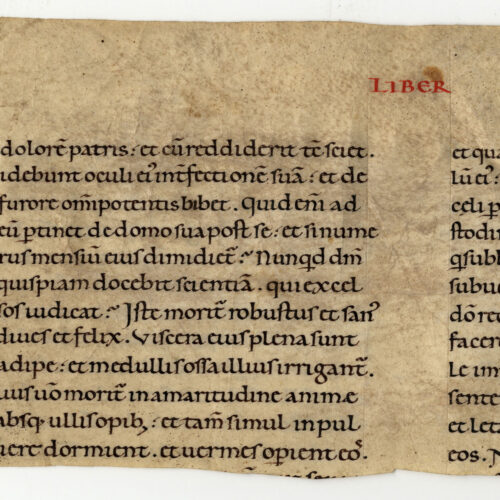 LIBER
dolorē patris: et cū reddiderit tē sciet.
idebunt oculi eiꝰ int̄fectionē suā: et de
furore om̄ipotentis bibet. Quid em̄ ad
eū ꝑtinet de domo sua post se: et si nume
rus mensiū eius dimidiet̄? Nunqͥd dm̄
quispiam docebit scientiā. qui excel
sos iudicat? Iste morit̄ robustus et sanꝰ
diues et felix. Viscera eius plena sunt
adipe: et medullis ossa illius irrigant̄.
uius u̅o morit̄ in amaritudine animę
absqꝫ ullis opibꝫ: et tam̄ simul in pul
uere dormient. et uermes oꝑient eoꝰ.
et qua
lū eiꝰ:
cęli ꝑ
stodin
qͥ subl
subue
dō rec
facere
Le im
sente
et lęta
eos. N